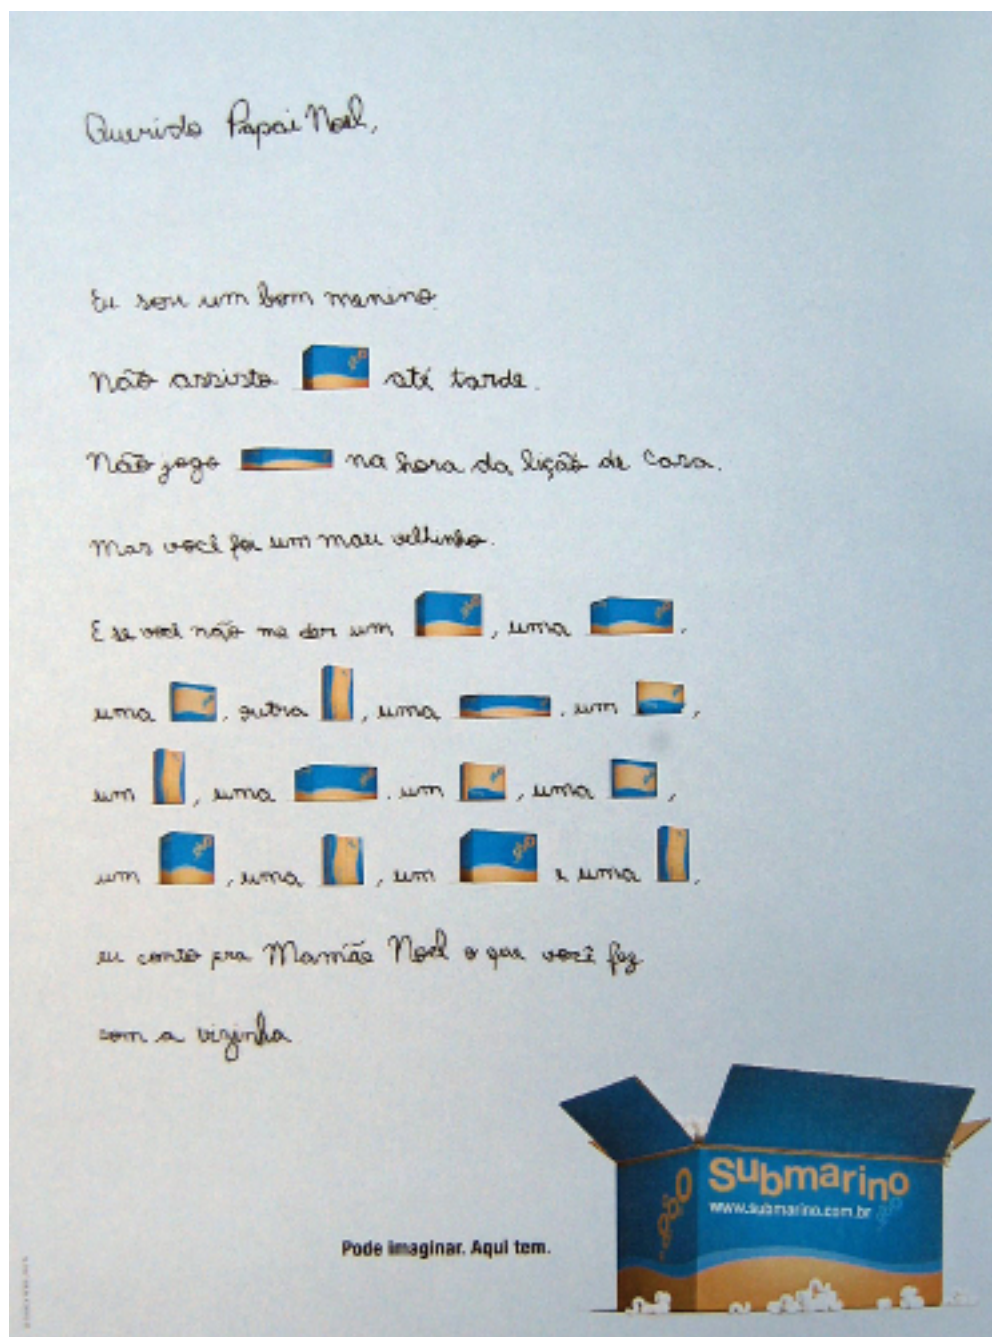 Querido Papai Noel,
Eu sou um bom menino.
Não assisto até tarde.
Não jogo na hora da lição de casa.
Mas você foi um mau velhinho.
E se você não me der um , uma ,
uma , outra , uma , um ,
um , uma , um , uma ,
um , uma , um e uma ,
eu conto pra Mamãe Noel o que você fez
com a vizinha
Submarino
www.submarino.com.br
Pode imaginar. Aqui tem.